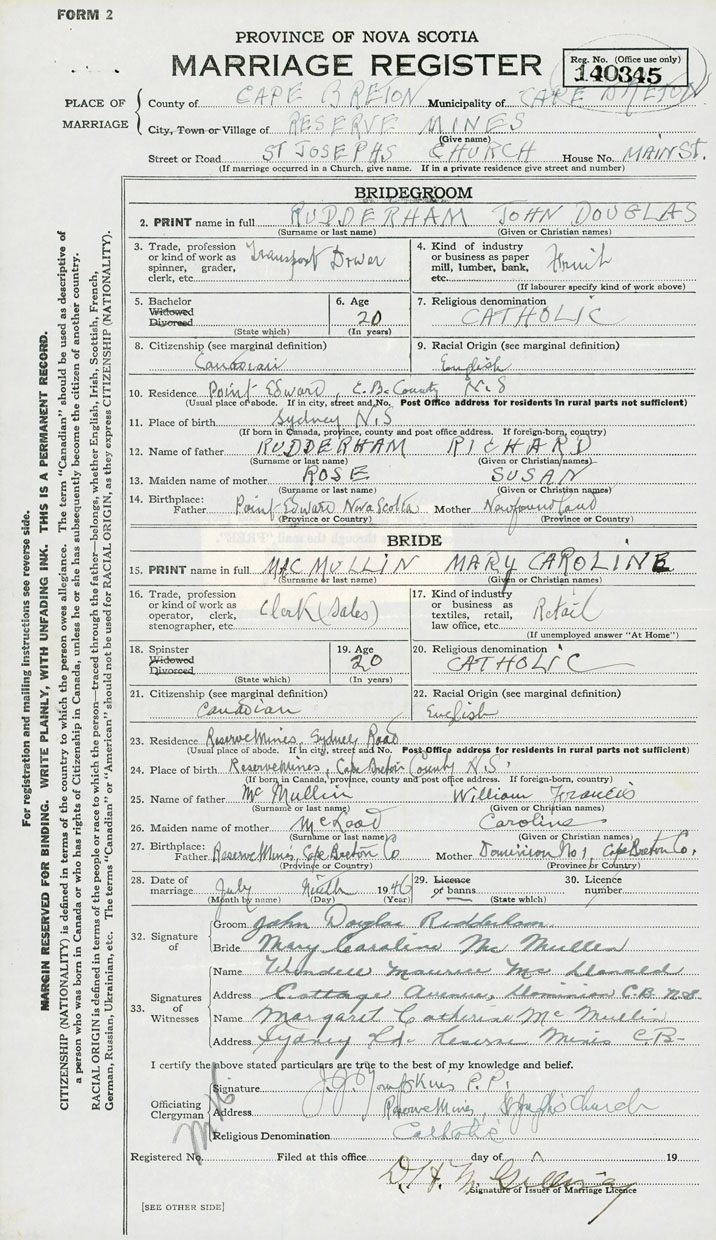 FORM 2
PROVINCE OF NOVA SCOTIA
MARRIAGE REGISTER
Reg. No. (Office use only)
140345
PLACE OF MARRIAGE
County of CAPE BRETON Municipality of CAPE BRETON
City, Town or Village of RESERVE MINES
(Give name)
Street or Road ST JOSEPHS CHURCH House No. MAIN ST.
(If marriage occurred in a Church, give name. If in a private residence give street and number)
BRIDEGROOM
2. PRINT name in full RUDDERHAM JOHN DOUGLAS
(Surname or last name) (Given or Christian names)
3. Trade, profession or kind of work as spinner, grader, clerk, etc. Transport Driver
4. Kind of industry or business as paper mill, lumber, bank, etc.
(If labourer specify kind of work above)
5. Bachelor Widowed Divorced (State which)
6. Age 20 (In years)
7. Religious denomination CATHOLIC
8. Citizenship (see marginal definition) Canadian
9. Racial Origin (see marginal definition) English
10. Residence Point Edward, C.B. County N.S
(Usual place of abode. If in city, street and No. Post Office address for residents in rural parts not sufficient)
11. Place of birth Sydney N.S
(If born in Canada, province, county and post office address. If foreign-born, country)
12. Name of father RUDDERHAM RICHARD
(Surname or last name) (Given or Christian names)
13. Maiden name of mother ROSE SUSAN
(Surname or last name) (Given or Christian names)
14. Birthplace: Father Point Edward Nova Scotia Mother Newfoundland
(Province or Country) (Province or Country)
BRIDE
15. PRINT name in full MAC MULLIN MARY CAROLINE
(Surname or last name) (Given or Christian names)
16. Trade, profession or kind of work as operator, clerk, stenographer, etc. Clerk (Sales)
17. Kind of industry or business as textiles, retail, law office, etc. Retail
(If unemployed answer "At Home")
18. Spinster Widowed Divorced (State which)
19. Age 20 (In years)
20. Religious denomination CATHOLIC
21. Citizenship (see marginal definition) Canadian
22. Racial Origin (see marginal definition) English
23. Residence Reserve Mines, Sydney Road
(Usual place of abode. If in city, street and No. Post Office address for residents in rural parts not sufficient)
24. Place of birth Reserve Mines, Cape Breton County N.S.
(If born in Canada, province, county and post office address. If foreign-born, country)
25. Name of father Mc Mullin William Francis
(Surname or last name) (Given or Christian names)
26. Maiden name of mother McLeod Caroline
(Surname or last name) (Given or Christian names)
27. Birthplace: Father Reserve Mines, Cape Breton Co Mother Dominion No 1, Cape Breton Co.
(Province or Country) (Province or Country)
28. Date of marriage July Ninth 1946
(Month by name) (Day) (Year)
29. Licence or banns (State which)
30. Licence number
32. Signature of
Groom John Douglas Rudderham
Bride Mary Caroline Mc Mullin
33. Signatures of Witnesses
Name Wendell Maurice Mc Donald
Address Cottage Avenue, Dominion C.B. N.S.
Name Margaret Catherine Mc Mullin
Address Sydney Rd. Reserve Mines C.B.
I certify the above stated particulars are true to the best of my knowledge and belief.
Officiating Clergyman
Signature J.J. Tompkins P.P.
Address Reserve Mines, St Joseph's Church
Religious Denomination Catholic
Registered No. Filed at this office day of 19
Signature of Issuer of Marriage Licence
[SEE OTHER SIDE]
For registration and mailing instructions see reverse side.
MARGIN RESERVED FOR BINDING. WRITE PLAINLY, WITH UNFADING INK. THIS IS A PERMANENT RECORD.
CITIZENSHIP (NATIONALITY) is defined in terms of the country to which the person owes allegiance. The term "Canadian" should be used as descriptive of
a person who was born in Canada or who has rights of Citizenship in Canada, unless he or she has subsequently become the citizen of another country.
RACIAL ORIGIN is defined in terms of the people or race to which the person—traced through the father—belongs, whether English, Irish, Scottish, French,
German, Russian, Ukrainian, etc. The terms "Canadian" or "American" should not be used for RACIAL ORIGIN, as they express CITIZENSHIP (NATIONALITY).